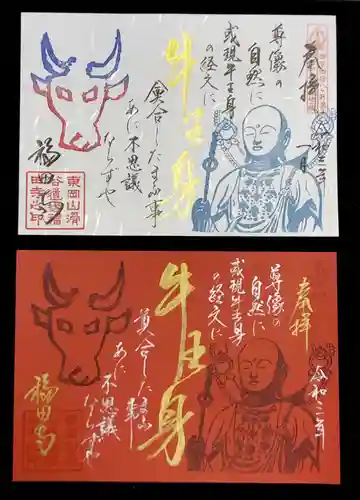 奉拝
令和三年
一月
尊像の
自然に
或現牛王身
の経文に
牛王身
會合したまふ事
あに不思議
ならずや
福田寺
奉拝
令和三年
尊像の
自然に
或現牛王身
の経文に
牛王身
あに不思議
ならずや
福田寺